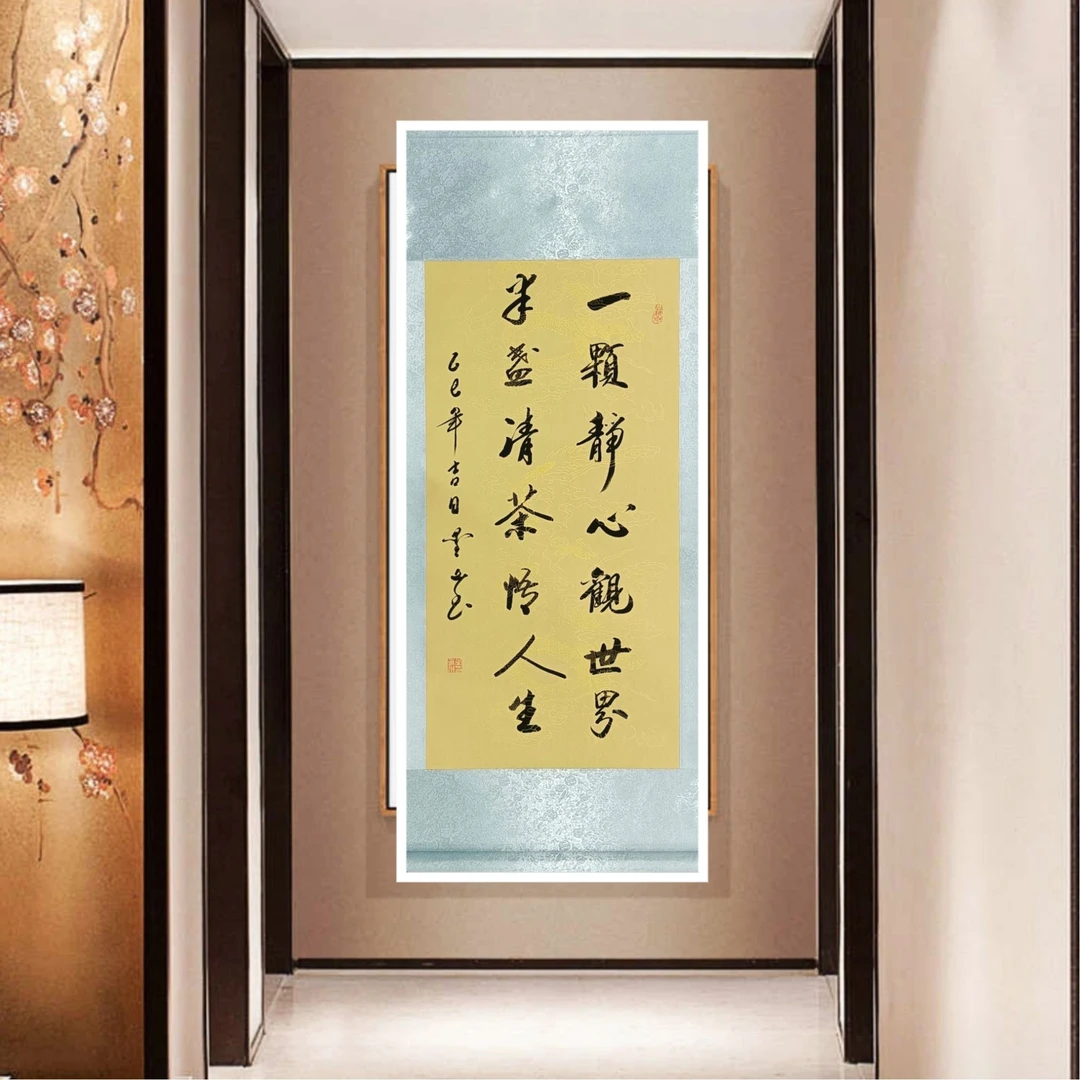 一顆靜心觀世界
半盞清茶悟人生
乙巳年吉日